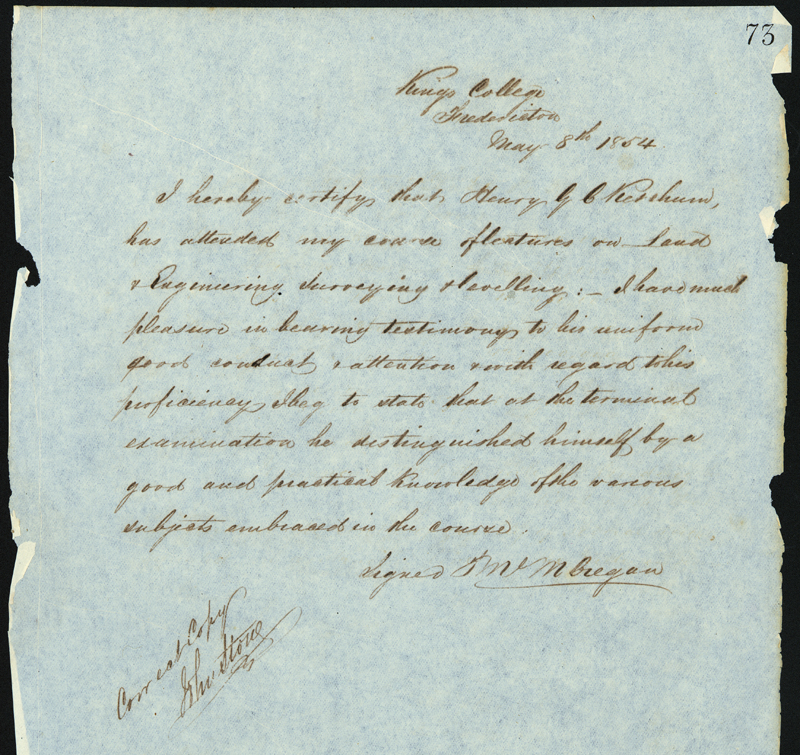 73
Kings College
Fredericton
May 8th 1854
I hereby certify that Henry G C Ketchum,
has attended my course of lectures on Land
& Engineering. Surveying & levelling : – I have much
pleasure in bearing testimony to his uniform
good conduct & attention & with regard to his
proficiency I beg to state that at the terminal
examination he distinguished himself by a
good and practical knowledge of the various
subjects embraced in the course.
Signed McMGregan
Correct Copy
John Stone